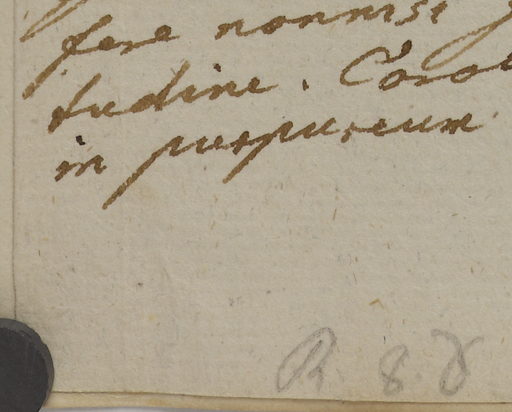 fere nonnisi
tudine. Corol
in purpureum
R. 8. D